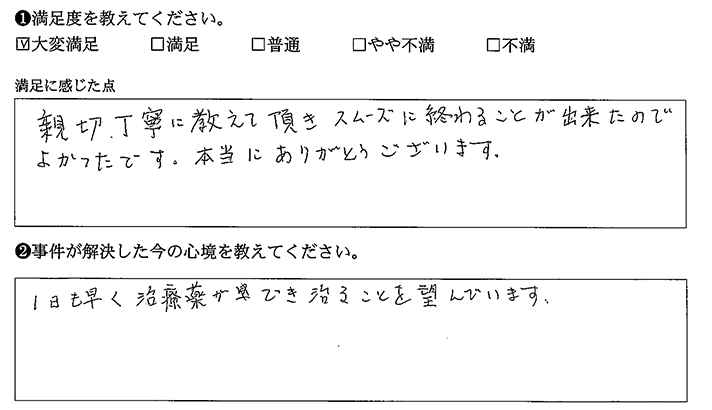 ❶満足度を教えてください。
☑大変満足 □満足 □普通 □やや不満 □不満
満足に感じた点
親切、丁寧に教えて頂きスムーズに終わることが出来たので
よかったです。本当にありがとうございます。
❷事件が解決した今の心境を教えてください。
1日も早く治療薬ができ治ることを望んでいます。